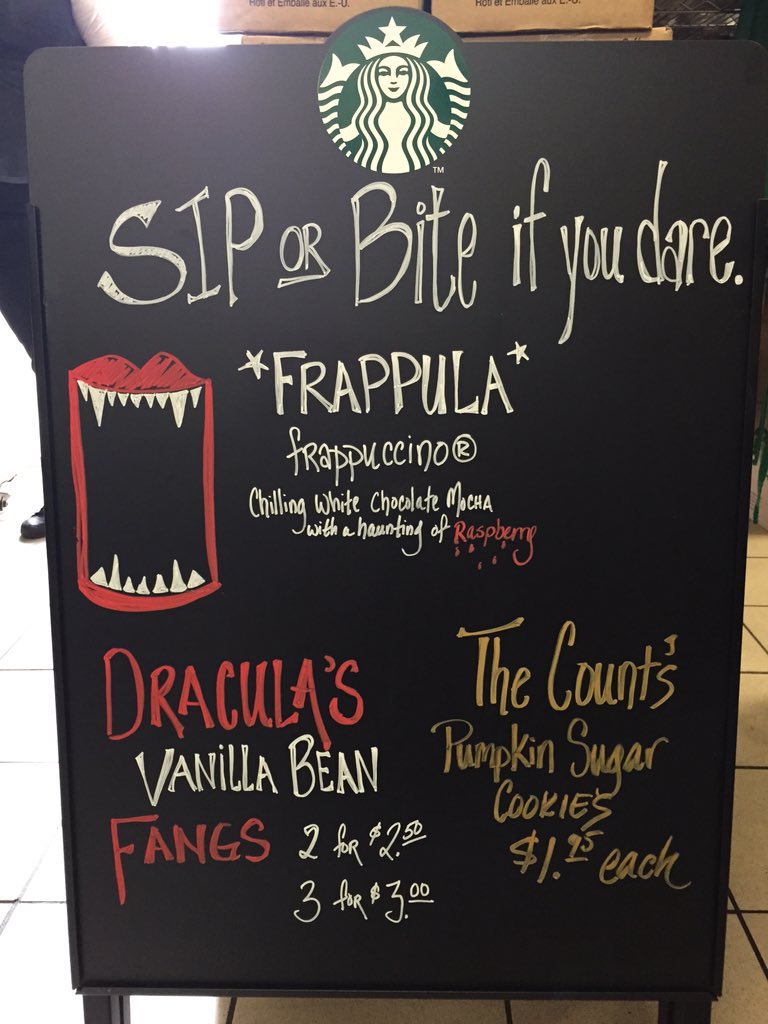 Roti et Emballé aux E.-U.
Roti et Emballé aux E.-U.
TM
SIP OR Bite if you dare.
*FRAPPULA*
frappuccino®
Chilling White Chocolate Mocha
with a haunting of Raspberry
DRACULA'S
VANILLA BEAN
FANGS 2 for $2.50
3 for $3.00
The Count's
Pumpkin Sugar
COOKIES
$1.95 each